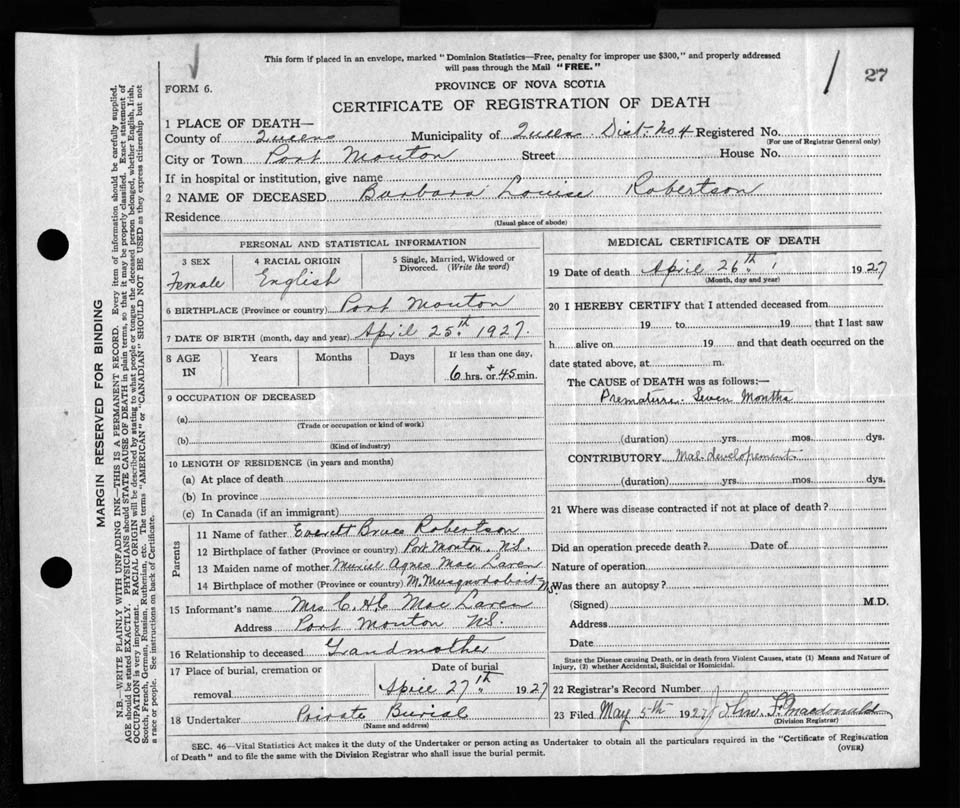 This form if placed in an envelope, marked "Dominion Statistics—Free, penalty for improper use $300," and properly addressed
will pass through the Mail "FREE."
27
FORM 6.
PROVINCE OF NOVA SCOTIA
CERTIFICATE OF REGISTRATION OF DEATH
1 PLACE OF DEATH—
County of Queens Municipality of Queens Dist. No 4 Registered No.
(For use of Registrar General only)
City or Town Port Mouton Street House No.
If in hospital or institution, give name
2 NAME OF DECEASED Barbara Louise Robertson
Residence
(Usual place of abode)
PERSONAL AND STATISTICAL INFORMATION
3 SEX
Female
4 RACIAL ORIGIN
English
5 Single, Married, Widowed or
Divorced. (Write the word)
6 BIRTHPLACE (Province or country) Port Mouton
7 DATE OF BIRTH (month, day and year) April 25th 1927.
8 AGE IN
Years Months Days If less than one day,
6 hrs. + or 45 min.
9 OCCUPATION OF DECEASED
(a)
(Trade or occupation or kind of work)
(b)
(Kind of industry)
10 LENGTH OF RESIDENCE (in years and months)
(a) At place of death
(b) In province
(c) In Canada (if an immigrant)
Parents
11 Name of father Everett Bruce Robertson
12 Birthplace of father (Province or country) Port Mouton. N.S.
13 Maiden name of mother Muriel Agnes Mac Laren
14 Birthplace of mother (Province or country) M. Musquodoboit N.S.
15 Informant's name Mrs C. H. Mac Laren
Address Port Mouton N.S.
16 Relationship to deceased Grandmother
17 Place of burial, cremation or
removal
Date of burial
April 27th 1927
18 Undertaker Private Burial
(Name and address)
MEDICAL CERTIFICATE OF DEATH
19 Date of death April 26th 1927
(Month, day and year)
20 I HEREBY CERTIFY that I attended deceased from
19 to 19 that I last saw
h alive on 19 and that death occurred on the
date stated above, at m.
The CAUSE of DEATH was as follows:—
Premature. Seven Months
(duration) yrs. mos. dys.
CONTRIBUTORY Mal-developement.
(duration) yrs. mos. dys.
21 Where was disease contracted if not at place of death?
Did an operation precede death? Date of
Nature of operation
Was there an autopsy?
(Signed) M.D.
Address
Date
State the Disease causing Death, or in death from Violent Causes, state (1) Means and Nature of
Injury, (2) whether Accidental, Suicidal or Homicidal.
22 Registrar's Record Number
23 Filed May 5th 1927 John F. Macdonald
(Division Registrar)
SEC. 46—Vital Statistics Act makes it the duty of the Undertaker or person acting as Undertaker to obtain all the particulars required in the "Certificate of Registration
of Death" and to file the same with the Division Registrar who shall issue the burial permit.
(OVER)
MARGIN RESERVED FOR BINDING
N.B.—WRITE PLAINLY WITH UNFADING INK—THIS IS A PERMANENT RECORD. Every item of information should be carefully supplied.
AGE should be stated EXACTLY. PHYSICIANS should STATE CAUSE OF DEATH in plain terms, so that it may be properly classified. Exact statement of
OCCUPATION is very important. RACIAL ORIGIN will be described by stating to what people or tongue the deceased person belonged, whether English, Irish,
Scotch, French, German, Russian, Ruthenian, etc. The terms "AMERICAN" or "CANADIAN" SHOULD NOT BE USED as they express citizenship but not
a race or people. See instructions on back of Certificate.